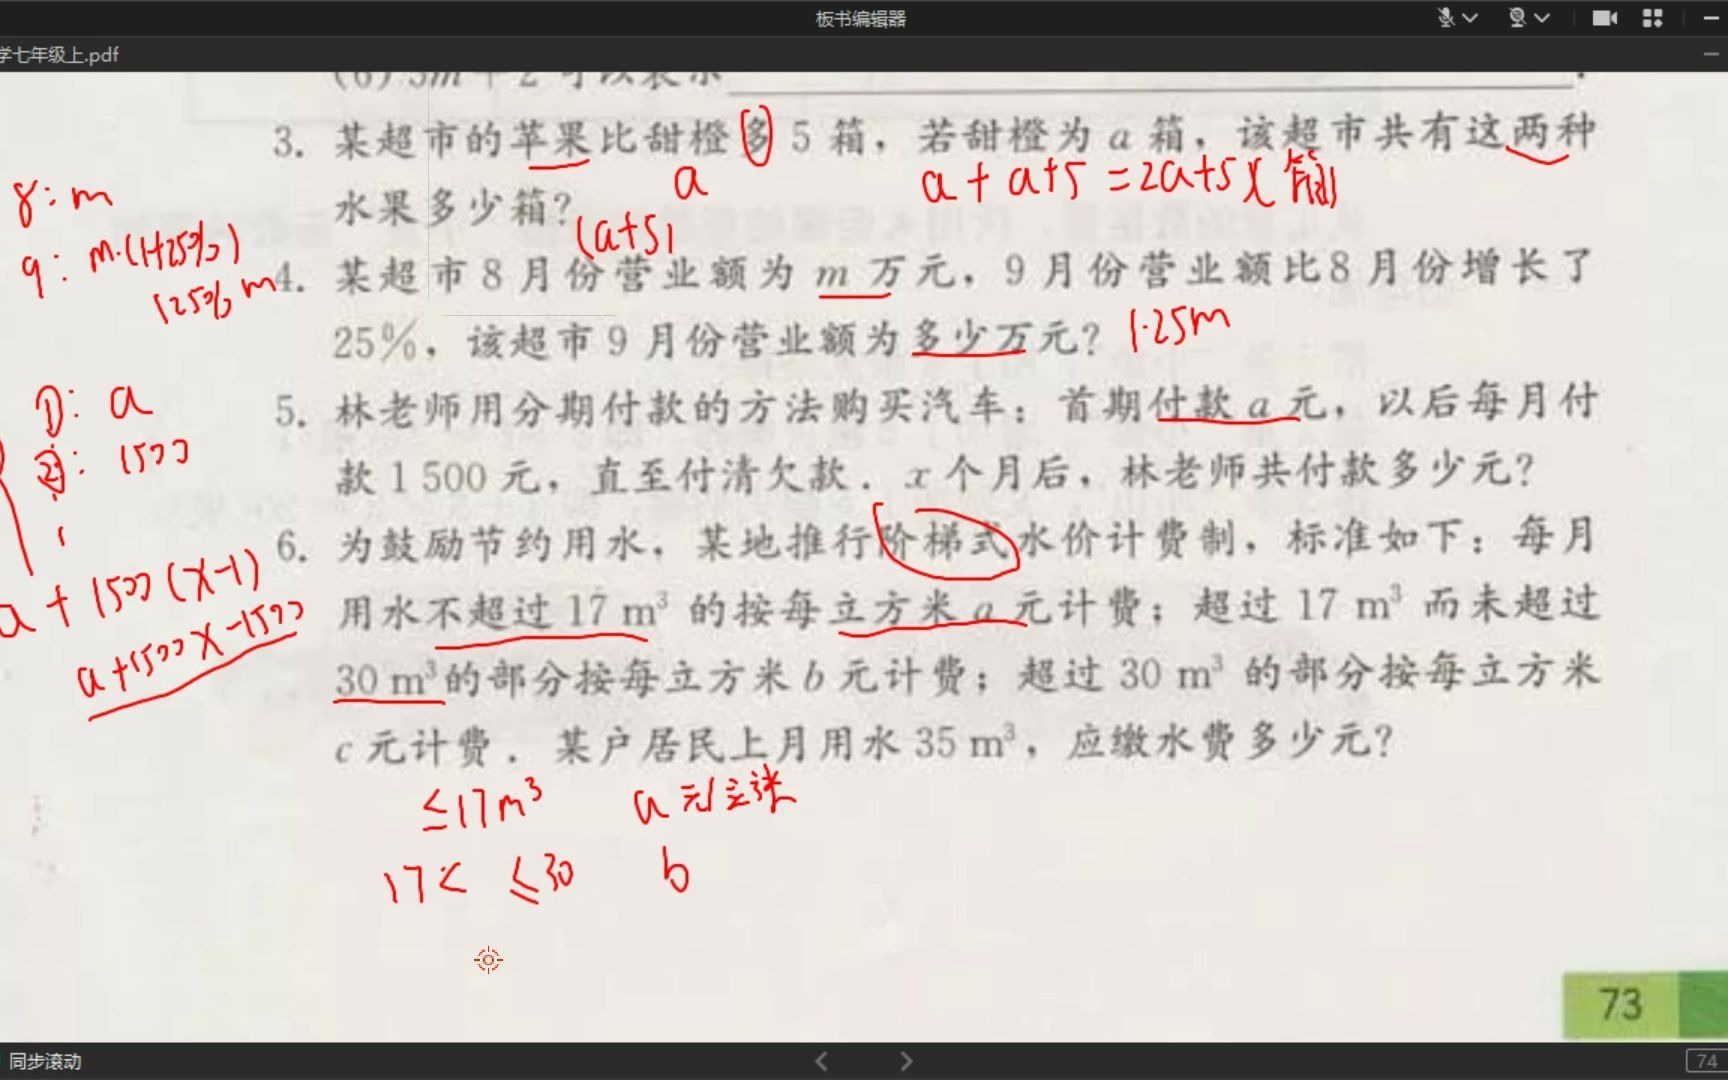 板书编辑器
学七年级上.pdf
(6) 5m + 2 可以表示
3. 某超市的苹果比甜橙多 5 箱，若甜橙为 a 箱，该超市共有这两种
水果多少箱？
a
a + a+5 = 2a+5 (箱)
(a+5)
8: m
9: m·(1+25%)
125% m
4. 某超市 8 月份营业额为 m 万元，9 月份营业额比8 月份增长了
25%，该超市 9 月份营业额为多少万元？
1.25m
5. 林老师用分期付款的方法购买汽车：首期付款 a 元，以后每月付
款 1 500 元，直至付清欠款．x 个月后，林老师共付款多少元？
①: a
②: 1500
a + 1500 (x-1)
a+1500x-1500
6. 为鼓励节约用水，某地推行阶梯式水价计费制，标准如下：每月
用水不超过 17 m³ 的按每立方米 a 元计费；超过 17 m³ 而未超过
30 m³的部分按每立方米 b 元计费；超过 30 m³ 的部分按每立方米
c 元计费．某户居民上月用水 35 m³，应缴水费多少元？
≤17m³ a 元/立米
17< ≤30 b
73
同步滚动
74